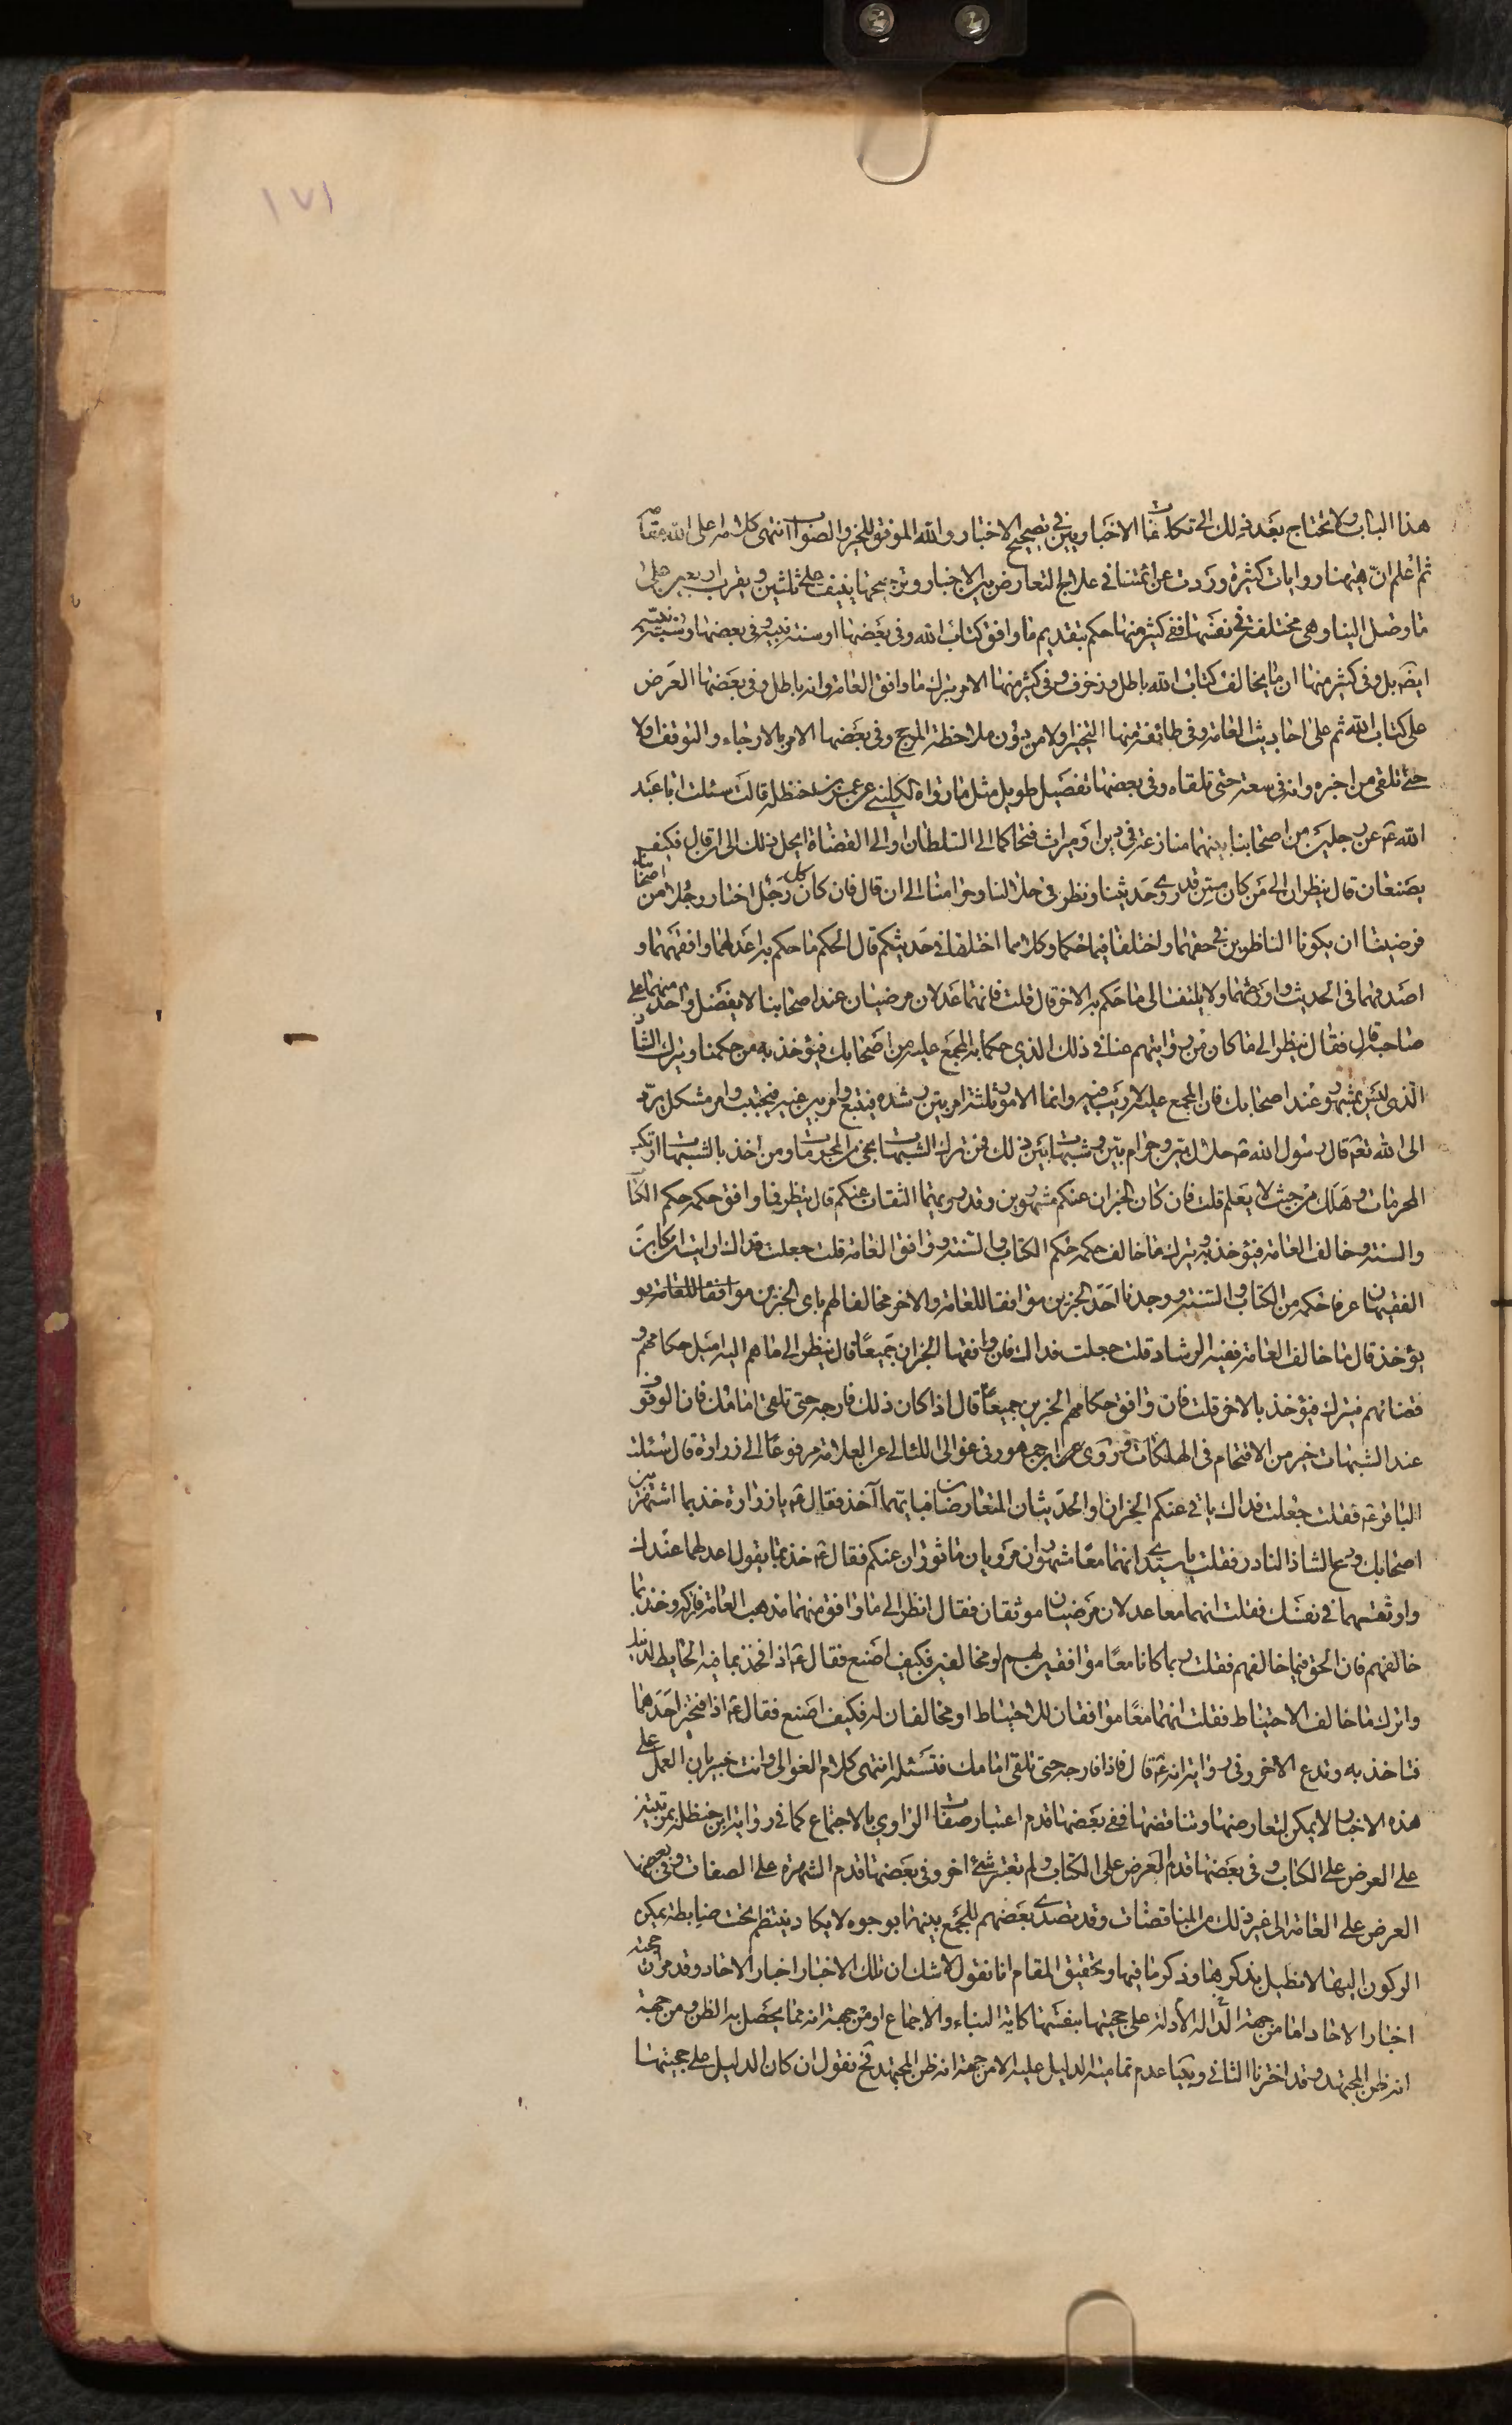 ١٧١
هذا الباب ولا تحتاج بعد ذلك الى تكلفات الاخباريين في تصحيح الاخبار والله الموفق للخير والصواب انتهى كلامه اعلى الله مقامه
ثم اعلم انّ هيهنا روايات كثيرة وردت عن ائمتنا في علاج التعارض بين الاخبار وترجيحها ينيف على ثلثين ويقرب اربعين على
ما وصل الينا وهي مختلفة في نفسها ففي كثير منها حكم بتقديم ما وافق كتاب الله وفي بعضها او سنة نبيه وفي بعضها وسنة نبيه
ايضا بل وفي كثير منها ان ما يخالف كتاب الله باطل وزخرف وفي كثير منها الامر بترك ما وافق العامة وانه باطل وفي بعضها العرض
على كتاب الله ثم على احاديث العامة وفي طائفة منها التخيير اولا من دون ملاحظة المرجح وفي بعضها الامر بالارجاء والتوقف اولا
حتى تلقى من اخبره وانه في سعة حتى تلقاه وفي بعضها تفصيل طويل مثل ما رواه الكليني عن عمر بن حنظلة قالت سئلت ابا عبد
الله عن رجلين من اصحابنا بينهما منازعة في دين او ميراث فتحاكما الى السلطان او الى القضاة ايحل ذلك الى ان قال فكيف
يصنعان قال ينظران الى من كان منكم قد روى حديثنا ونظر في حلالنا وحرامنا الى ان قال فان كان كل رجل اختار رجلا من اصحابنا
فرضينا ان يكونا الناظرين في حقهما واختلفا فيما حكما وكلاهما اختلفا في حديثكم قال الحكم ما حكم به اعدلهما وافقههما و
اصدقهما في الحديث واورعهما ولا يلتفت الى ما حكم به الاخر قال قلت فانهما عدلان مرضيان عند اصحابنا لا يفضل واحد منهما على
صاحبه قال فقال ينظر الى ما كان من روايتهم عنا في ذلك الذي حكما به المجمع عليه من اصحابك فيؤخذ به من حكمنا ويترك الشاذ
الذي ليس بمشهور عند اصحابك فان المجمع عليه لا ريب فيه وانما الامور ثلثة امر بين رشده فيتبع وامر بين غيه فيجتنب وامر مشكل يردّ
الى الله تعه قال رسول الله ص حلال بين وحرام بين وشبهات بين ذلك فمن ترك الشبهات نجى من المحرمات ومن اخذ بالشبهات ارتكب
المحرمات وهلك من حيث لا يعلم قلت فان كان الخبران عنكم مشهورين وقد رويهما الثقات عنكم قال ينظر فما وافق حكمه حكم الكتاب
والسنة وخالف العامة فيؤخذ به ويترك ما خالف حكمه حكم الكتاب والسنة ووافق العامة قلت جعلت فداك ان رايت ان كان
الفقيهان عرفا حكمه من الكتاب والسنة ووجدنا احد الخبرين موافقا للعامة والاخر مخالفا لهم باي الخبرين موافقا للعامة يو
يؤخذ قال ما خالف العامة ففيه الرشاد قلت جعلت فداك فان وافقها الخبران جميعًا قال ينظر الى ما هم اليه اميل حكامهم و
قضاتهم فيترك فيؤخذ بالاخر قلت فان وافق حكامهم الخبرين جميعًا قال اذا كان ذلك فارجه حتى تلقى امامك فان الوقوف
عند الشبهات خير من الاقتحام في الهلكات وروى ابن ابي جمهور في غوالي اللئالي عن العلامة مرفوعًا الى زرارة قال سئلت
الباقر ع فقلت جعلت فداك ياتي عنكم الخبران او الحديثان المتعارضان فبايهما آخذ فقال ع يا زرارة خذ بما اشتهر بين
اصحابك ودع الشاذ النادر فقلت يا سيدي انهما معًا مشهوران مرويان ماثوران عنكم فقال ع خذ بما يقول اعدلهما عندك
واوثقهما في نفسك فقلت انهما معا عدلان مرضيان موثقان فقال انظر الى ما وافق منهما مذهب العامة فاتركه وخذ بما
خالفهم فان الحق فيما خالفهم فقلت ربما كانا معًا موافقين لهم او مخالفين فكيف اصنع فقال ع اذا فخذ بما فيه الحايطة لدينك
واترك ما خالف الاحتياط فقلت انهما معًا موافقان للاحتياط او مخالفان له فكيف اصنع فقال ع اذا فتخير احدهما
فتاخذ به وتدع الاخر وفي رواية انه ع قال فاذا فارجه حتى تلقى امامك فتسئله انتهى كلام الغوالي وانت خبير بان العمل على
هذه الاخبار لا يمكن لتعارضها وتناقضها ففي بعضها قدم اعتبار صفات الراوي بالاجتماع كما في رواية ابن حنظلة بمرتبتين
على العرض على الكتاب وفي بعضها قدم العرض على الكتاب ولم تعتبر شئ اخر وفي بعضها قدم الشهرة على الصفات وفي بعضها
العرض على العامة الى غير ذلك من المناقضات وقد تصدى بعضهم للجمع بينها بوجوه لا يكاد ينتظم تحت ضابطة يمكن
الركون اليها لا نطيل بذكرها وذكر ما فيها وتحقيق المقام انا نقول لا شك ان تلك الاخبار اخبار الاحاد وقد مر ان حجية
اخبار الاحاد اما من جهة الدالة الأدلة على حجيتها بنفسها كاية النباء والاجماع او من جهة انه مما يحصل به الظن ومن جهة
انه ظن المجتهد وقد اخترنا الثاني وبينا عدم تمامية الدليل عليه الا من جهة انه ظن المجتهد فح نقول ان كان الدليل على حجيتها